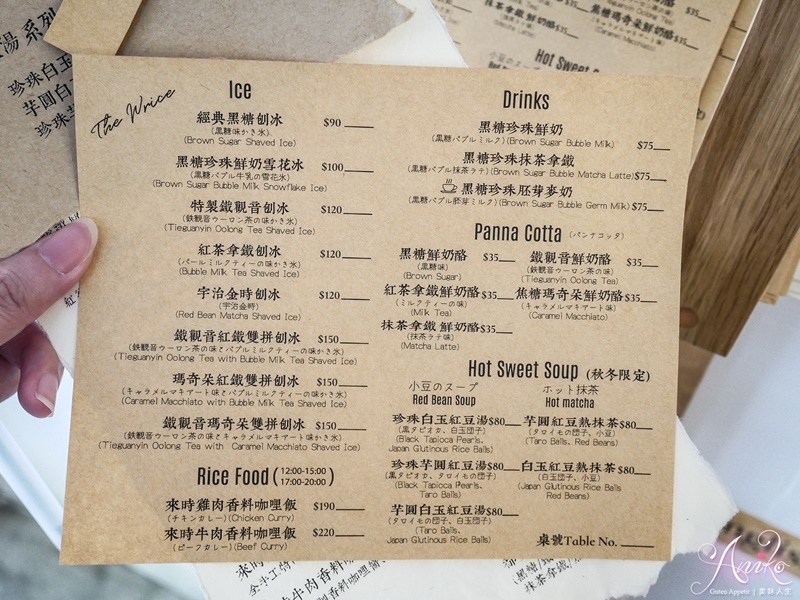 The Wrice
Ice
經典黑糖刨冰 $90
(黒糖味かき氷)
(Brown Sugar Shaved Ice)
黑糖珍珠鮮奶雪花冰 $100
(黒糖パブル牛乳の雪花氷)
(Brown Sugar Bubble Milk Snowflake Ice)
特製鐵觀音刨冰 $120
(鉄観音ウーロン茶の味かき氷)
(Tieguanyin Oolong Tea Shaved Ice)
紅茶拿鐵刨冰 $120
(パールミルクティーの味かき氷)
(Bubble Milk Tea Shaved Ice)
宇治金時刨冰 $120
(宇治金時)
(Red Bean Matcha Shaved Ice)
鐵觀音紅鐵雙拼刨冰 $150
(鉄観音ウーロン茶の味とパブルミルクティーの味かき氷)
(Tieguanyin Oolong Tea with Bubble Milk Tea Shaved Ice)
瑪奇朵紅鐵雙拼刨冰 $150
(キャラメルマキアート味とパブルミルクティーの味かき氷)
(Caramel Macchiato with Bubble Milk Tea Shaved Ice)
鐵觀音瑪奇朵雙拼刨冰 $150
(鉄観音ウーロン茶の味とキャラメルマキアート味かき氷)
(Tieguanyin Oolong Tea with Caramel Macchiato Shaved Ice)
Rice Food (12:00-15:00
17:00-20:00)
來時雞肉香料咖哩飯 $190
(チキンカレー)(Chicken Curry)
來時牛肉香料咖哩飯 $220
(ビーフカレー)(Beef Curry)
Drinks
黑糖珍珠鮮奶
(黒糖パブルミルク)(Brown Sugar Bubble Milk) $75
黑糖珍珠抹茶拿鐵
(黒糖パブル抹茶ラテ)(Brown Sugar Bubble Matcha Latte) $75
黑糖珍珠胚芽麥奶
(黒糖パブル胚芽ミルク)(Brown Sugar Bubble Germ Milk) $75
Panna Cotta (パンナコッタ)
黑糖鮮奶酪 $35
(黒糖味)
(Brown Sugar)
鐵觀音鮮奶酪 $35
(鉄観音ウーロン茶の味)
(Tieguanyin Oolong Tea)
紅茶拿鐵鮮奶酪 $35
(ミルクティーの味)
(Milk Tea)
焦糖瑪奇朵鮮奶酪 $35
(キャラメルマキアート味)
(Caramel Macchiato)
抹茶拿鐵鮮奶酪 $35
(抹茶ラテ味)
(Matcha Latte)
Hot Sweet Soup (秋冬限定)
小豆のスープ
Red Bean Soup
ホット抹茶
Hot matcha
珍珠白玉紅豆湯 $80
(黒タピオカ、白玉団子)
(Black Tapioca Pearls,
Japan Glutinous Rice Balls)
芋圓紅豆熱抹茶 $80
(タロイモの団子、小豆)
(Taro Balls, Red Beans)
珍珠芋圓紅豆湯 $80
(黒タピオカ、タロイモの団子)
(Black Tapioca Pearls,
Taro Balls)
白玉紅豆熱抹茶 $80
(白玉団子、小豆)
(Japan Glutinous Rice Balls
Red Beans)
芋圓白玉紅豆湯 $80
(タロイモの団子、白玉団子)
(Taro Balls,
Japan Glutinous Rice Balls)
桌號Table No.
Aniko
Guten Appetit | 食誌人生